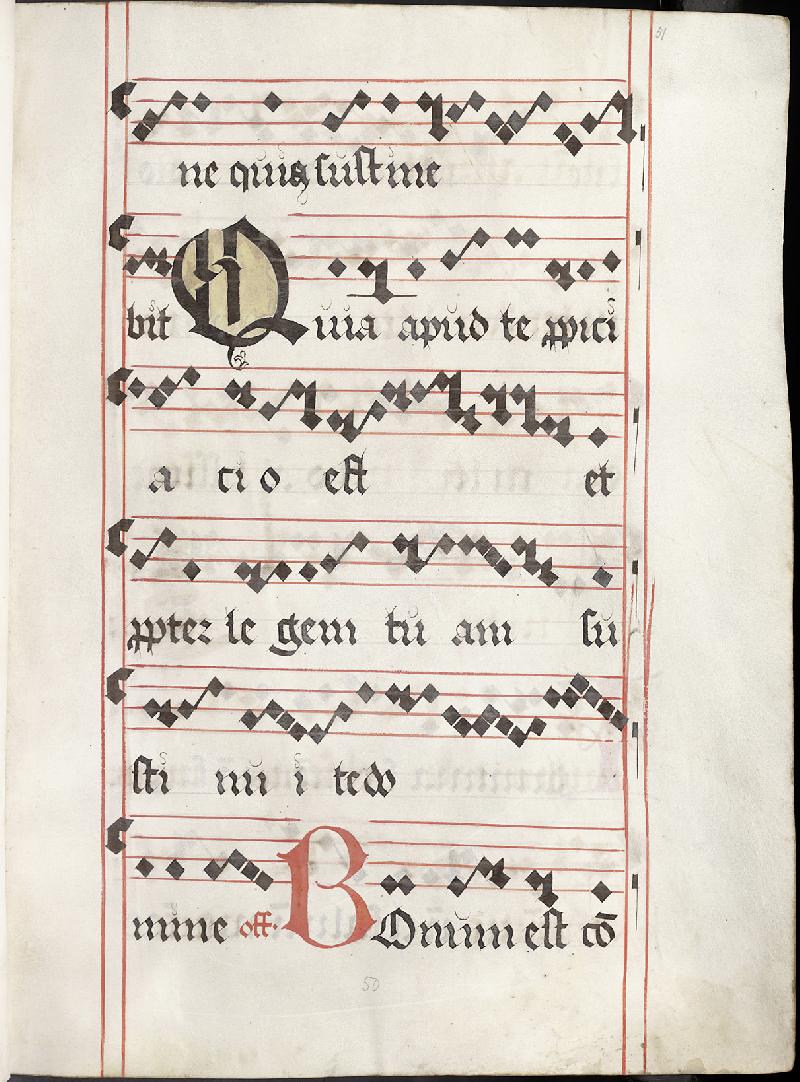 51
ne quis sustine
bit Quia apud te ppici
a cio est et
ppter le gem tu am su
sti nu i te do
mine off. BOnum est cō
50